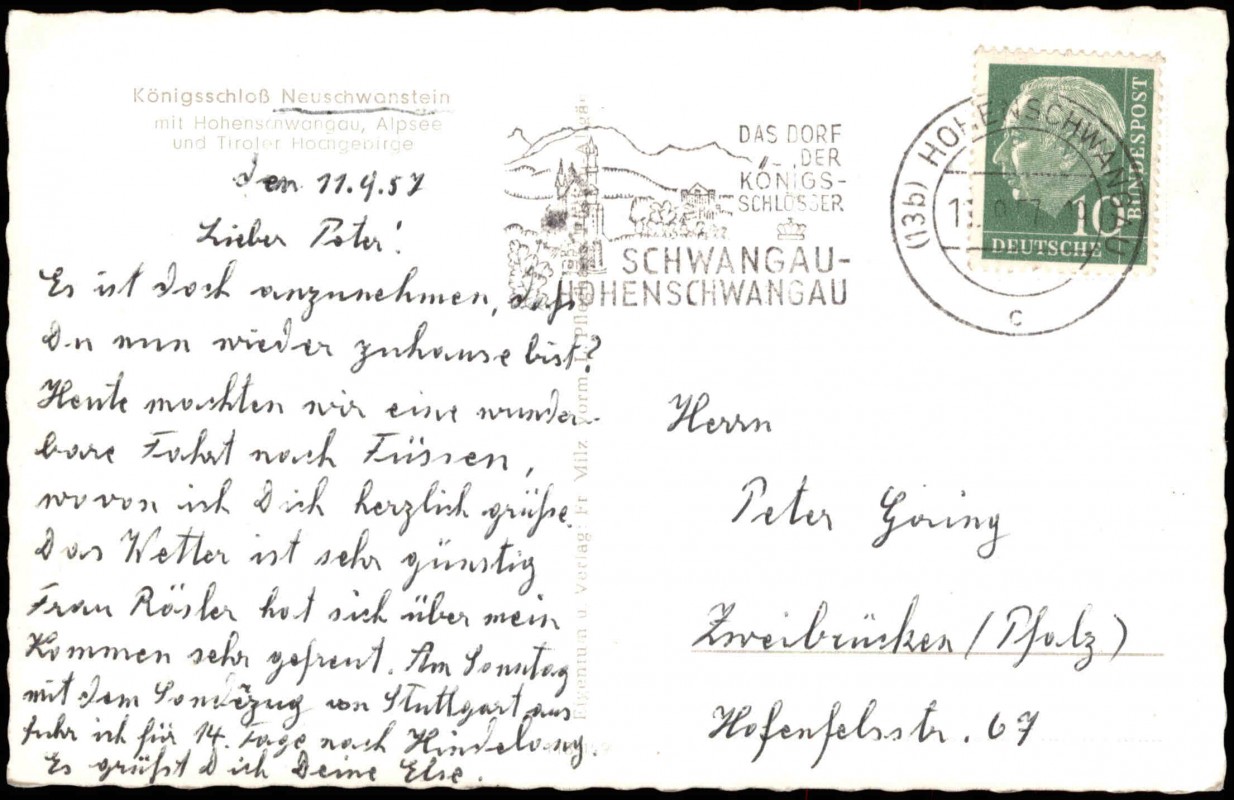 Königsschloß Neuschwanstein
mit Hohenschwangau, Alpsee
und Tiroler Hochgebirge
den 11.9.57
Lieber Peter!
Es ist doch anzunehmen, dass
Du nun wieder zuhause bist?
Heute machten wir eine wunder-
bare Fahrt nach Füssen,
wovon ich Dich herzlich grüße.
Das Wetter ist sehr günstig
Frau Rösler hat sich über mein
Kommen sehr gefreut. Am Sonntag
mit dem Sonderzug von Stuttgart aus
fuhr ich für 14. Tage nach Hindelang.
Es grüßt Dich Deine Else.
Eigentum u Verlag: Fr Milz vorm
DAS DORF
DER
KÖNIGS-
SCHLÖSSER
SCHWANGAU-
HOHENSCHWANGAU
(13b) HOHENSCHWANGAU
c
10
DEUTSCHE
BUNDESPOST
Herrn
Peter Göring
Zweibrücken (Pfalz)
Hofenfelsstr. 67